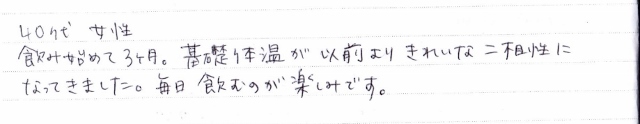 40代 女性
飲み始めて3ヶ月。基礎体温が以前よりきれいな二相性に
なってきました。毎日飲むのが楽しみです。